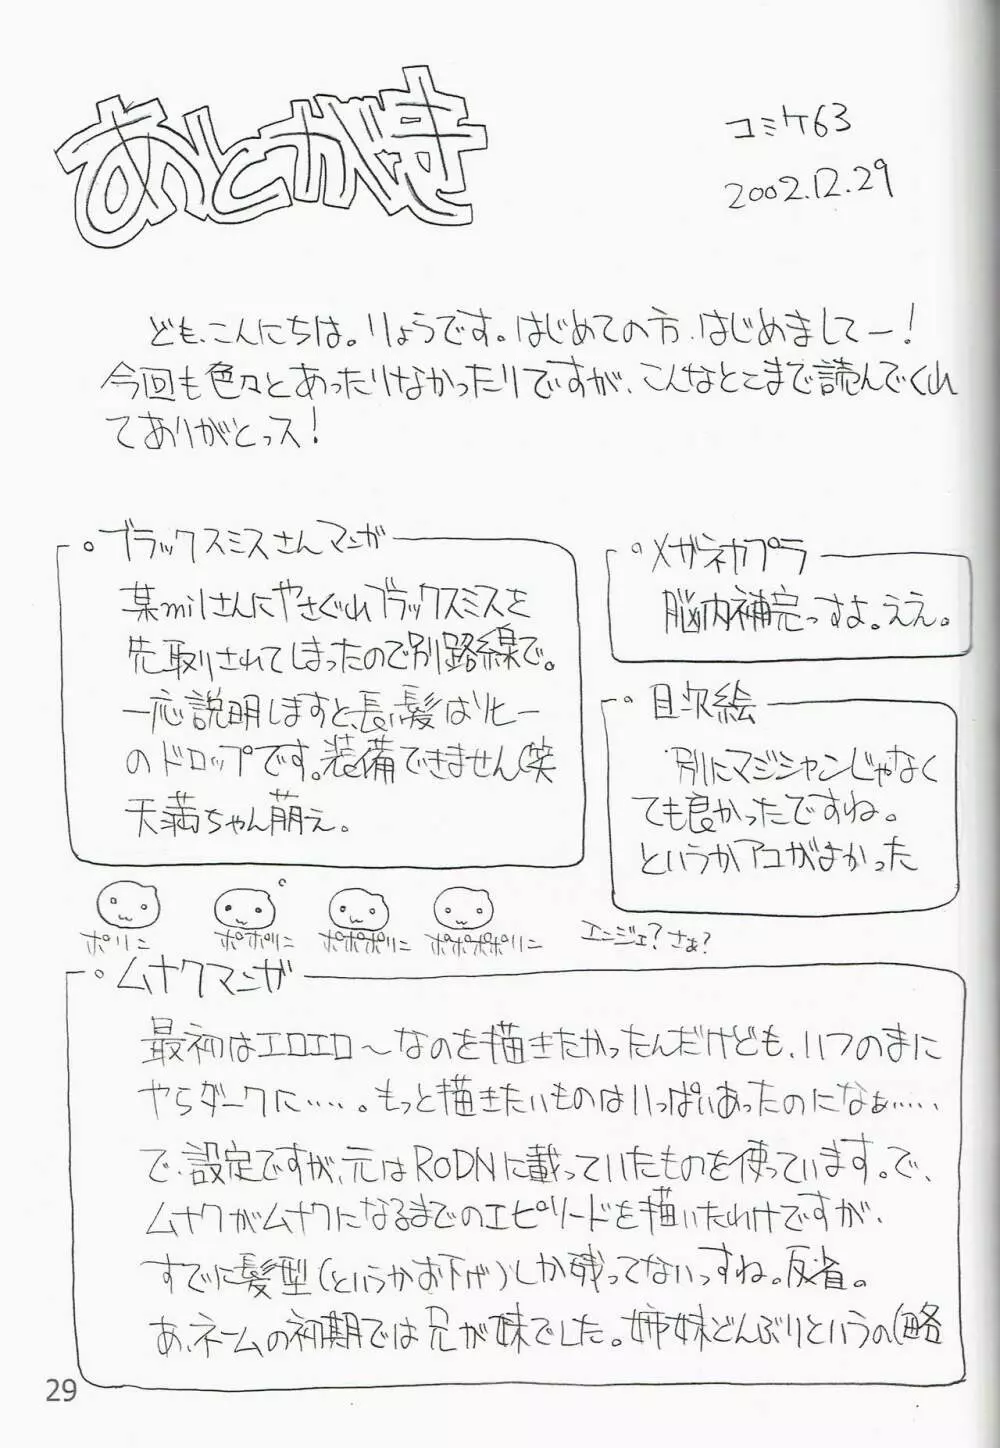 あとがき
コミケ63
2002.12.29
ども、こんにちは。りょうです。はじめての方、はじめましてー!
今回も色々とあったりなかったりですが、こんなとこまで読んでくれ
てありがとっス!
。ブラックスミスさんマンガ
某milさんにやさぐれブラックスミスを
先取りされてしまったので別路線で。
一応説明しますと、長い髪はソヒー
のドロップです。装備できません(笑
天満ちゃん萌え。
。メガネカプラ
脳内補完っすよ。ええ。
。目次絵
別にマジシャンじゃなく
ても良かったですね。
というかアコがよかった
ポリン
ポポリン
ポポポリン
ポポポポリン
エンジェ?さぁ?
。ムナクマンガ
最初はエロエロ〜なのを描きたかったんだけども、いつのまに
やらダークに……。もっと描きたいものはいっぱいあったのになぁ……
で、設定ですが、元はRODNに載っていたものを使っています。で、
ムナクがムナクになるまでのエピソードを描いたわけですが、
すでに髪型(というかお下げ)しか残ってないっすね。反省。
あ、ネームの初期では兄が妹でした。姉妹どんぶりというの(略
29